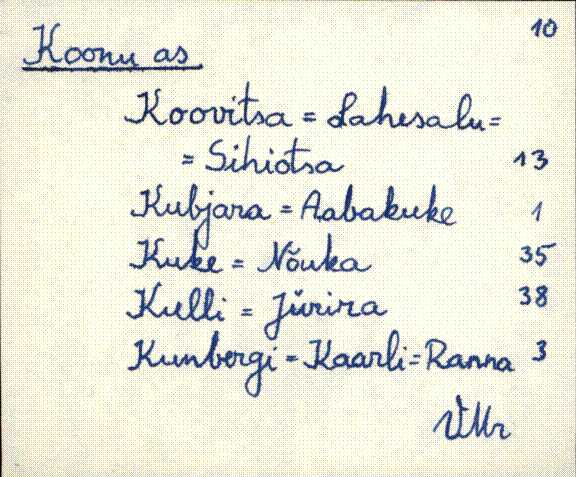 10
Koonu as
Koovitsa = Lahesalu =
= Sihiotsa 13
Kubjara = Aabakuke 1
Kuke = Nõuka 35
Kulli = Jürira 38
Kunbergi = Kaarli = Ranna 3
VMr